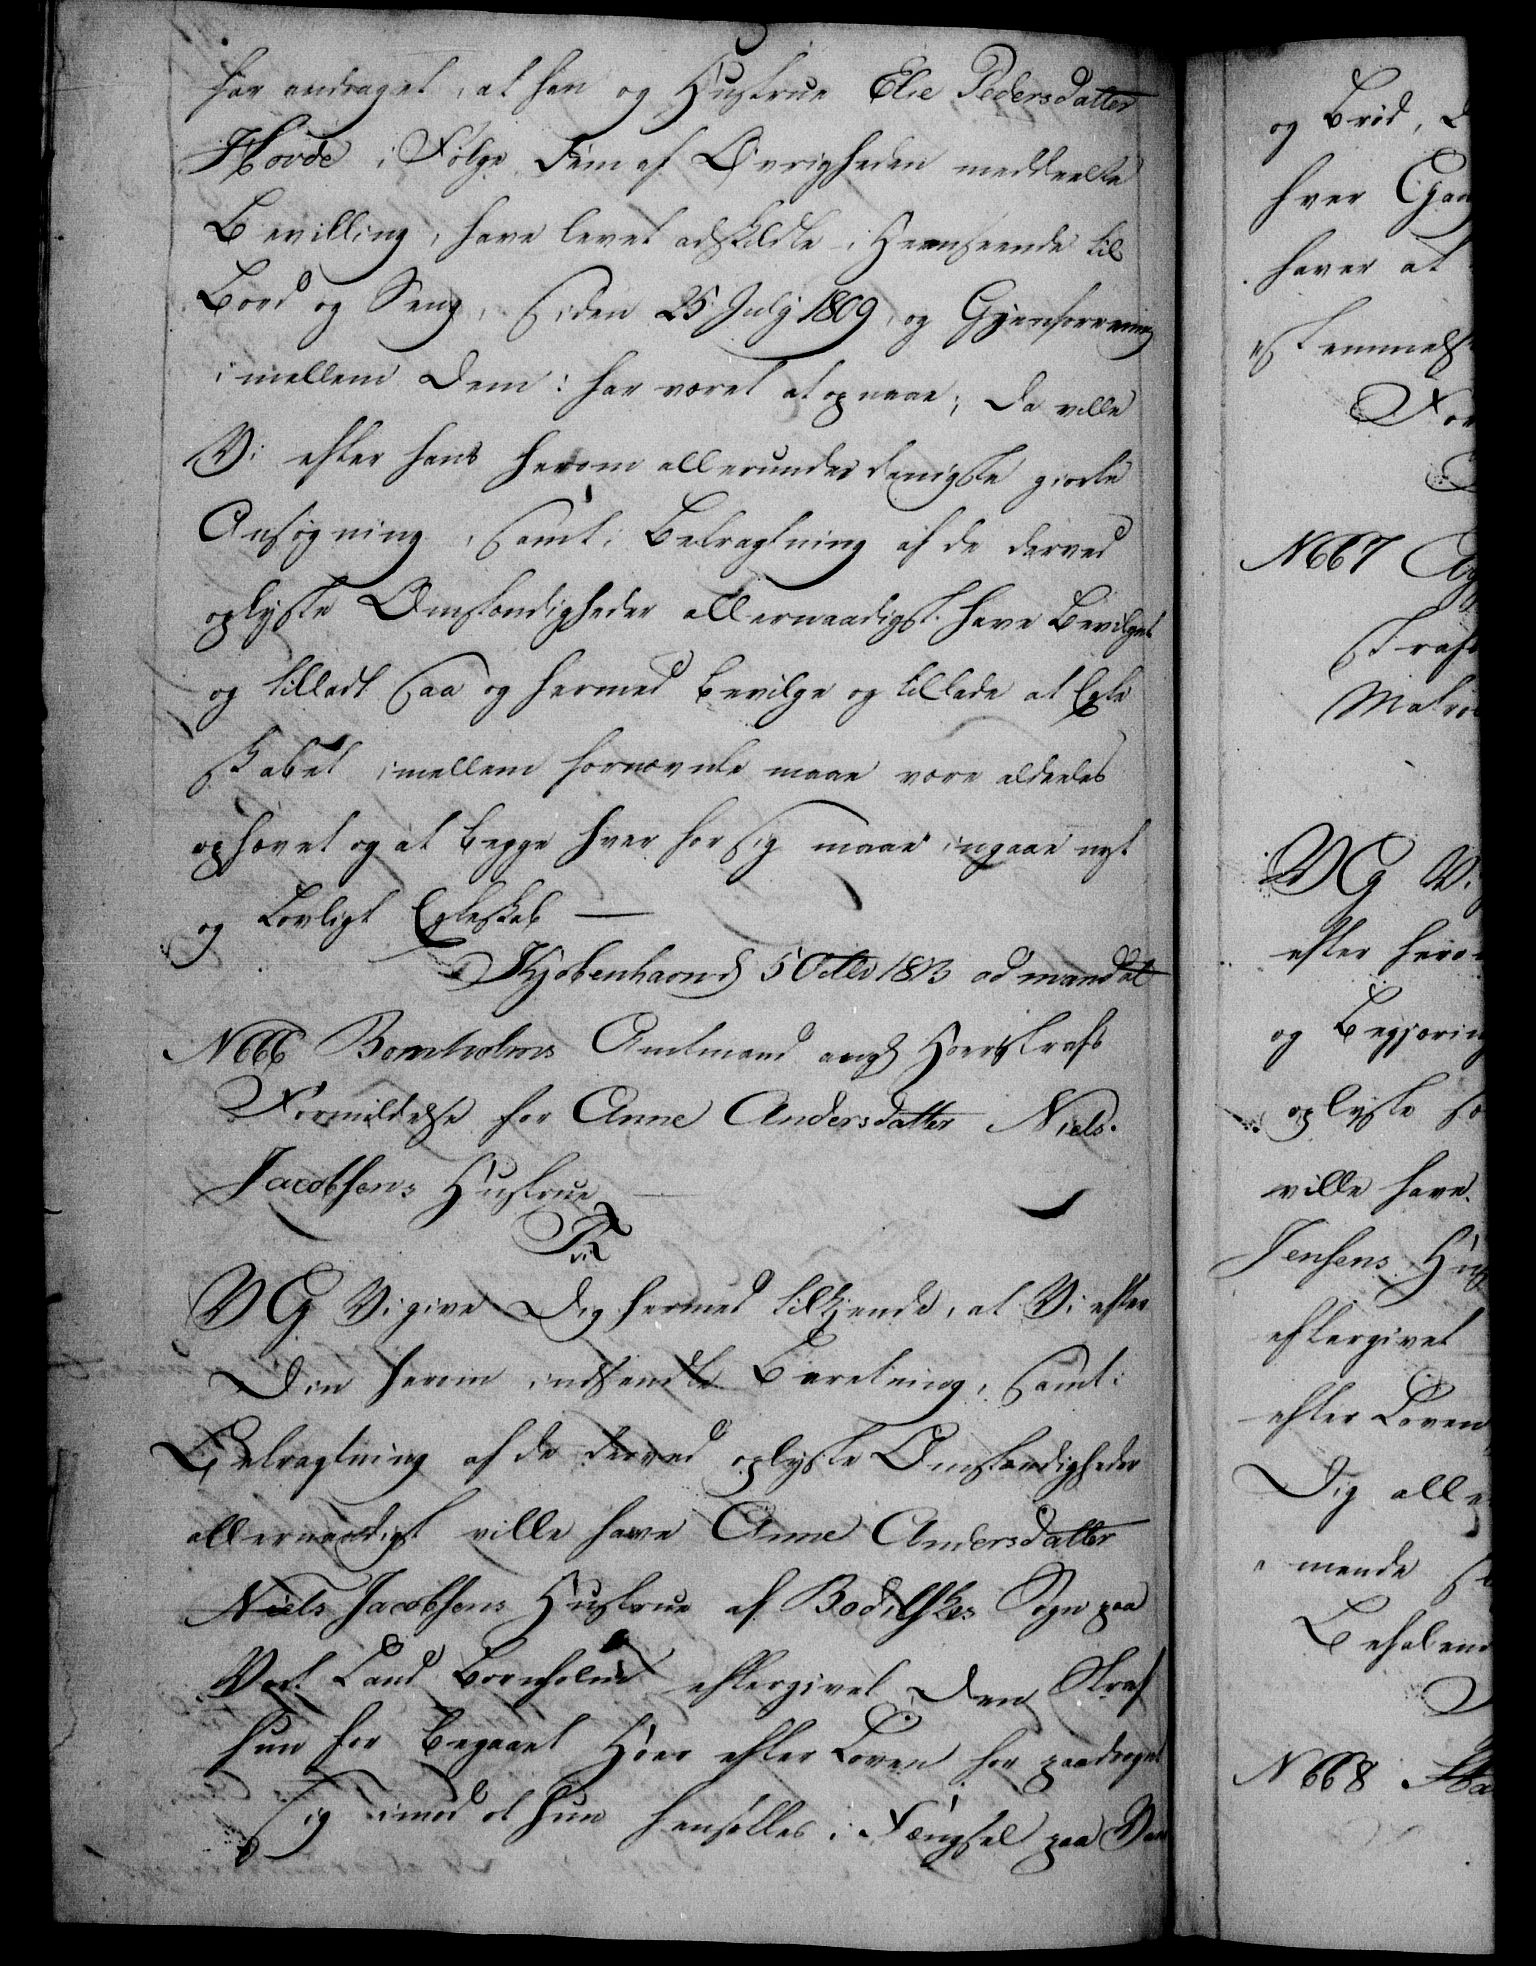 har andraget, at han og Hustrue Elie Pedersdatter
Hovde i Følge Dem af Øvrigheden meddeelte
Bevilling, have levet adskildte i Henseende til
Bord og Seng, siden 25 July 1809, og Gjenforrening
imellem Dem: har været at opnaae; Da ville
Vi efter hans herom allerunderdanigste giorte
Ansøgning, samt i Betragtning af de derved
oplyste Omstændigheder allernaadigst have Bevilget
og tilladt saa og hermed bevilge og tillade at Egte
skabet imellem fornævnte maae være aldeeles
ophævet og at begge hver for sig maae indgaae nyt
og Lovligt Egteskab —
Kjøbenhavn d 5 Octbr 1813 ad mandat
N 666 Bornholms Amtmand angd Hoerstrafs
Formildelse for Anne Andersdatter Niels
Jacobsens Hustrue
FR
VG Vi give Dig hermed tilkjende, at Vi efter
Din herom indsendte Beretning, samt i
Betragtning af de derved oplyste Omstændigheder
allernaadigst ville have Anne Andersdatter
Niels Jacobsens Hustrue af Bodilskes Sogn paa
Vort Land Bornholm eftergivet Den Straf
hun for begaaet Hoer efter Loven har paadraget
sig imod at hun hensættes i Fængsel paa Van
og Brød,
hver Gan
haver at
stemmelse
For
N 667
Straf
Matro
VG Vi
efter hero
og Begjering
oplyste
ville have
Jensens Hus
eftergivet
efter Loven
Dig aller
mende
Befalen
N 668